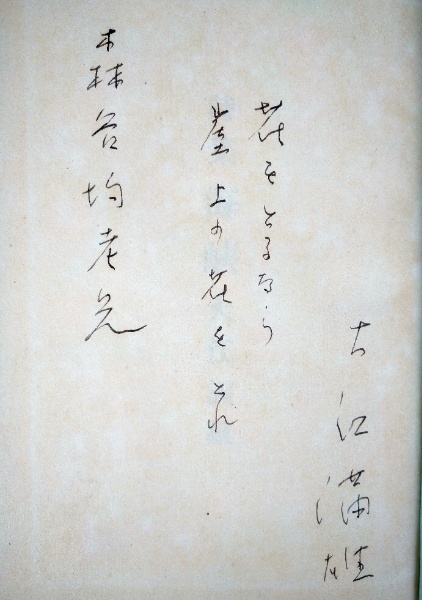 大江満雄
花をとるなら
崖上の花をとれ
森谷均老兄